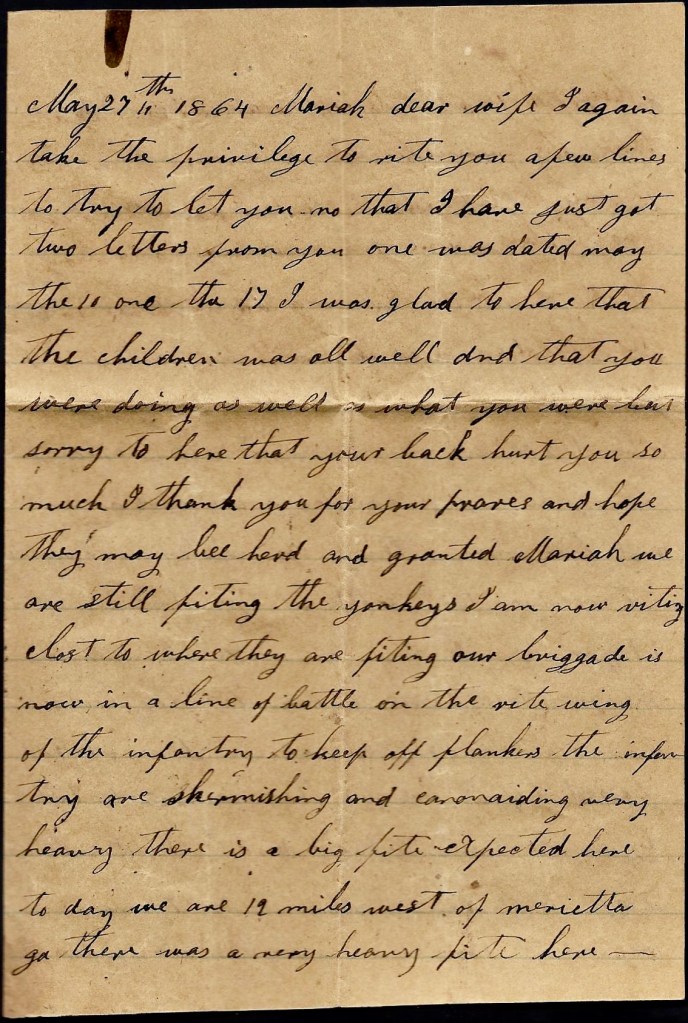 May 27th 1864 Mariah dear wife I again
take the privilege to rite you a few lines
to try to let you no that I have just got
two letters from you one was dated may
the 10 one the 17 I was glad to here that
the children was all well and that you
were doing as well as what you were but
sorry to here that your back hurt you so
much I thank you for your prares and hope
they may bee herd and granted Mariah we
are still fiting the yankeys I am now riting
clost to where they are fiting our briggade is
now in a line of battle on the rite wing
of the infantry to keep off flankers the infan
try are skermishing and canonaiding very
heavy there is a big fite expected here
to day we are 12 miles west of merietta
ga there was a very heavy fite here —